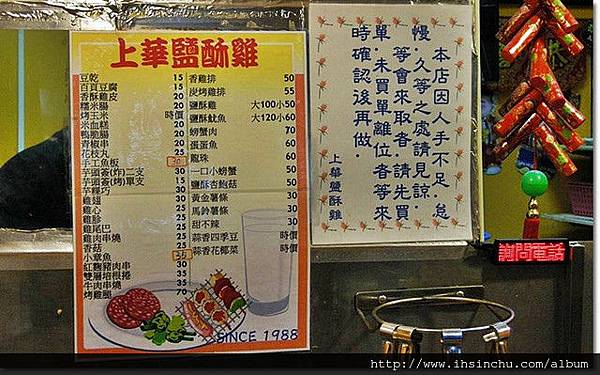 上華鹽酥雞
豆乾 15
百頁豆腐 15
香酥雞皮 20
糯米腸 20
烤玉米 時價
米血糕 20
鴨脆腸 20
青椒串 20
花枝丸 25
手工魚板
芋頭簽(炸)二支 30
芋頭簽(烤)單支
芋粿巧
雞翅 30
雞心 25
雞胗 25
雞尾巴 25
雞肉串燒
香菇 25
小章魚
紅麴豬肉串 30
雙層培根捲 35
牛肉串燒 35
烤雞腿 70
香雞排 50
炭烤雞排 55
鹽酥雞 大100小50
鹽酥魷魚 大120小60
螃蟹肉 70
蛋蛋魚 60
龍珠 60
一口小螃蟹 50
鹽酥杏鮑菇 50
黃金薯條 30
馬鈴薯條 30
甜不辣 30
蒜香四季豆 時價
蒜香花椰菜 時價
SINCE 1988
本店因人手不足，怠
慢、久等之處請見諒，
等會來取者，請先買
單，未買單離位者等來
時確認後再做。
上華鹽酥雞
詢問電話
http://www.ihsinchu.com/album